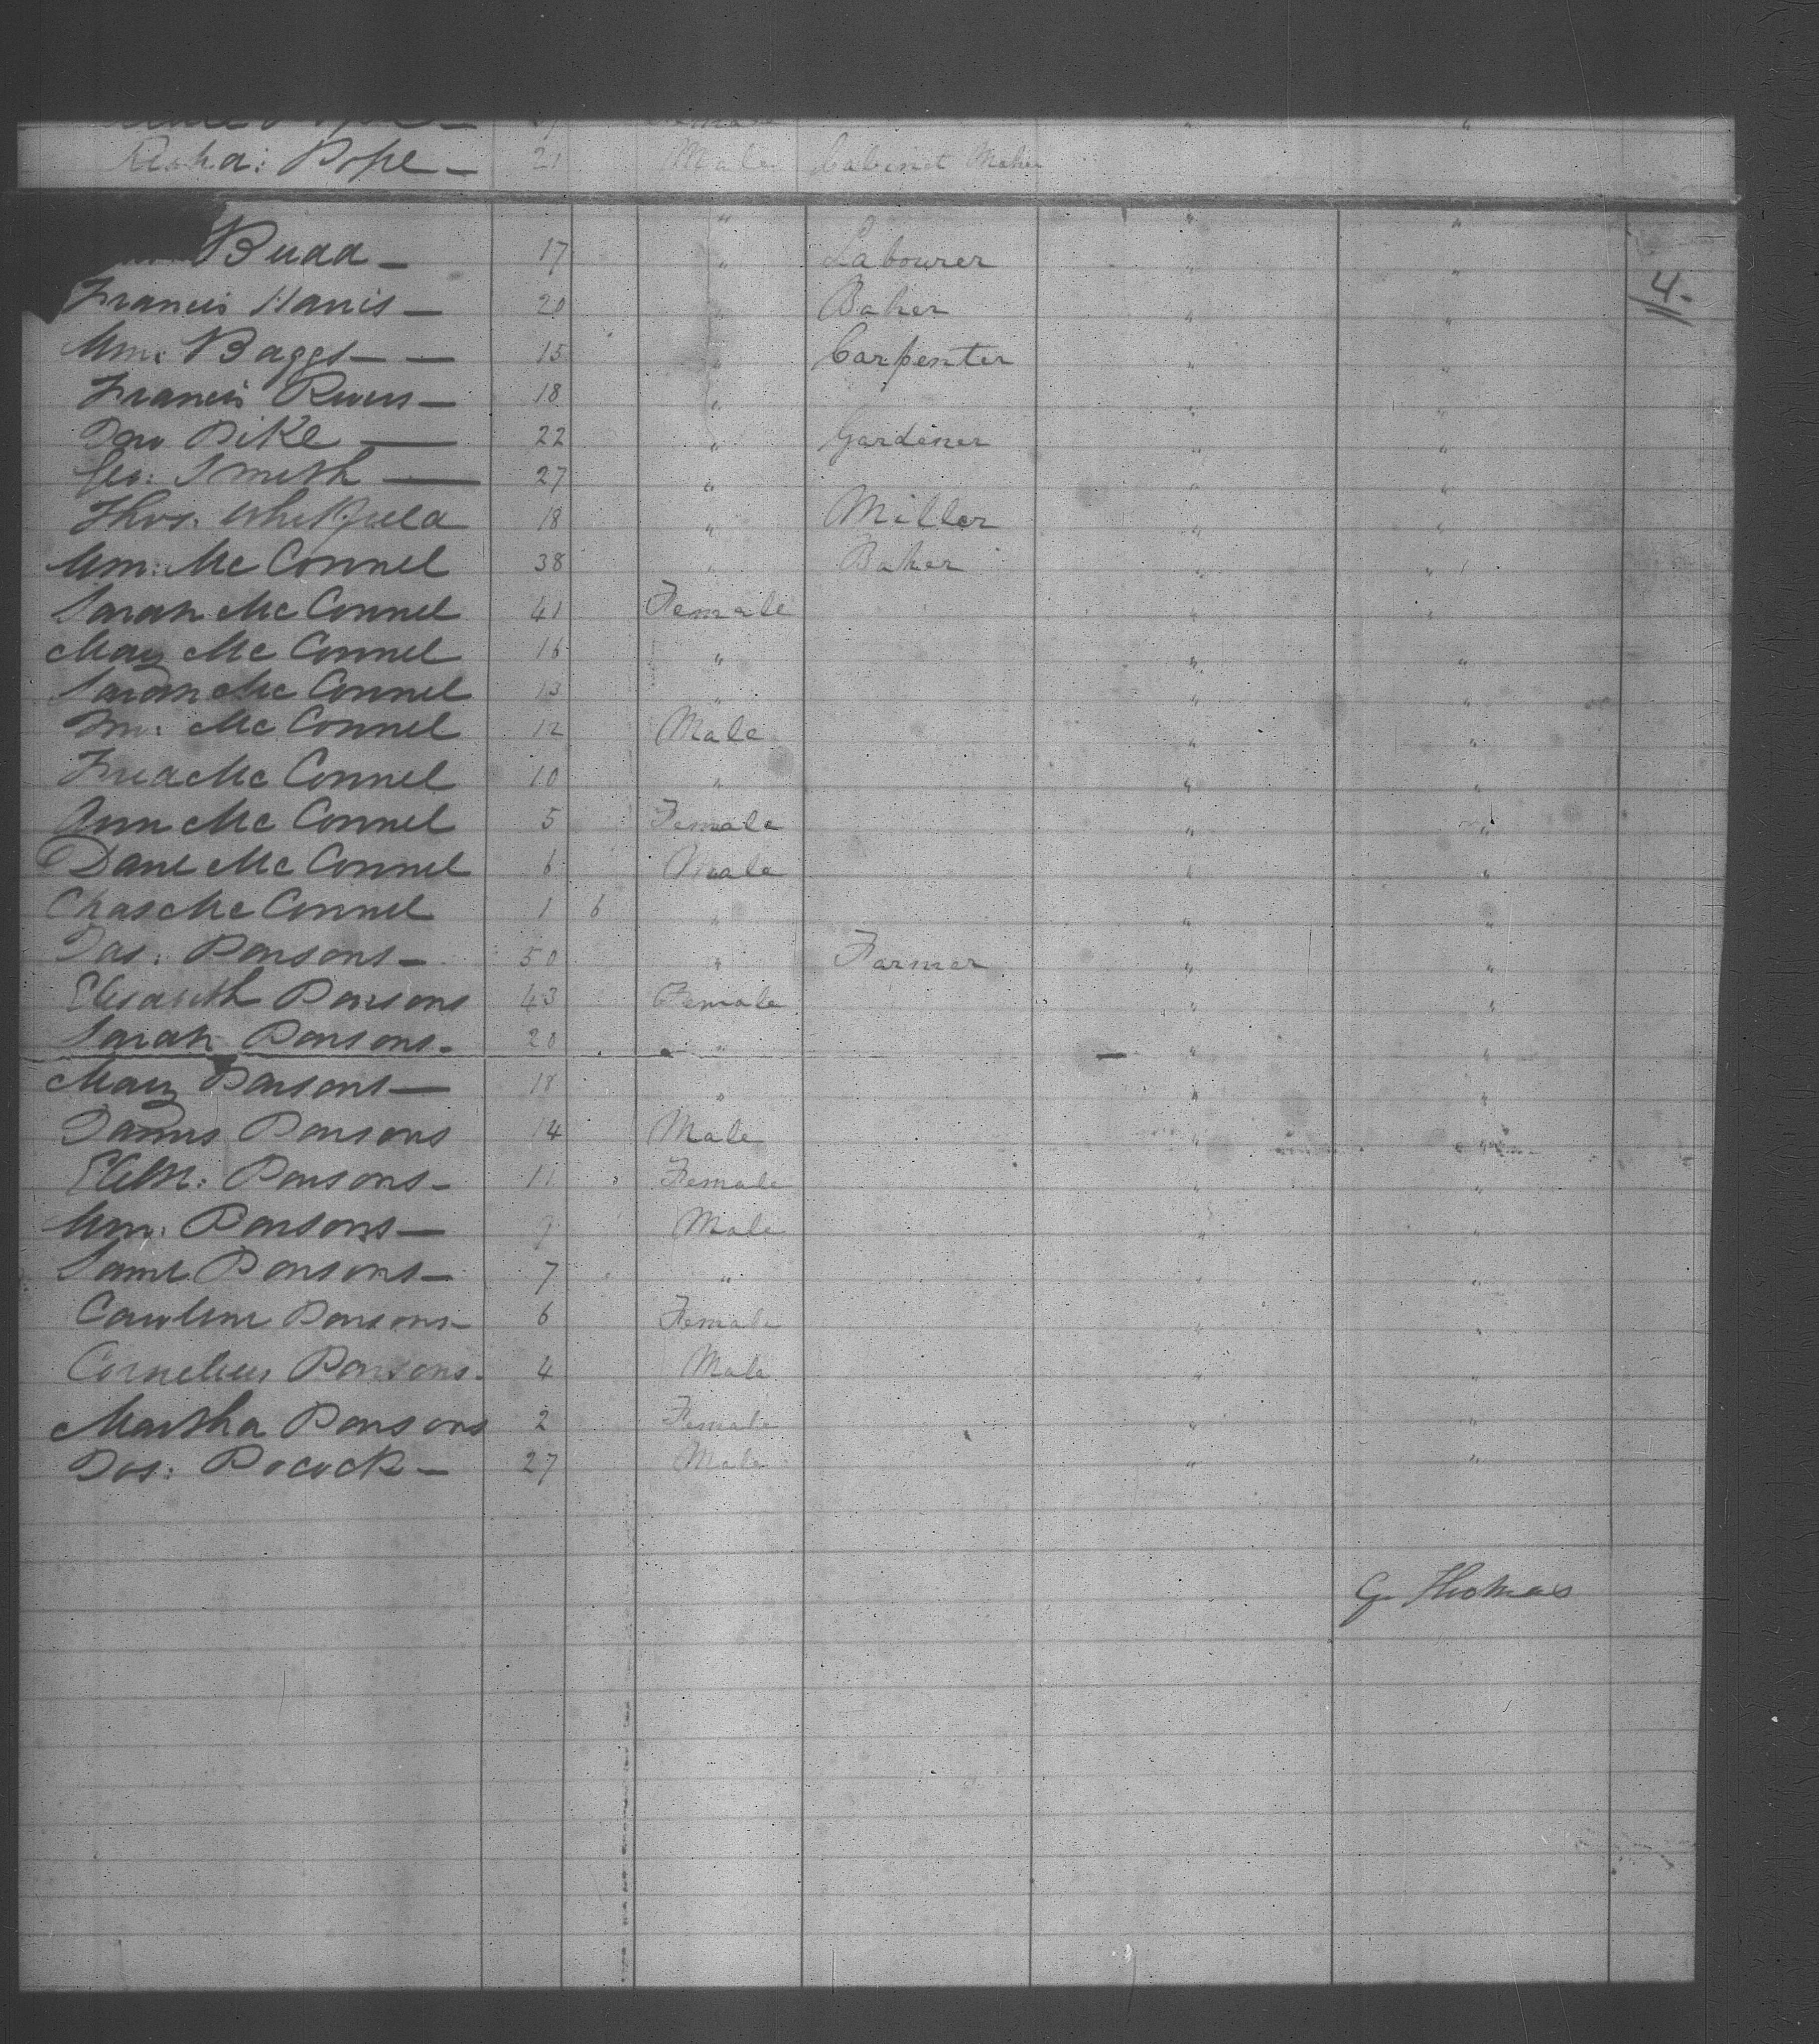 Pope — " "
Richd: Pope — 21 Male Cabinet Maker
" " "
Budd — 17 " Labourer " "
4.
Francis Harris — 20 " Baker " "
Wm: Baggs — — 15 " Carpenter " "
Francis Rivers — 18 " " "
Jno Pike — 22 " Gardener " "
Geo: Smith — 27 " " "
Thos. Whitfield 18 " Miller " "
Wm: McConnel 38 " Baker " "
Sarah McConnel 41 Female " "
Mary McConnel 16 " " "
Sarah McConnel 13 " " "
Jno: McConnel 12 Male " "
Fred McConnel 10 " " "
Ann McConnel 5 Female " "
Danl McConnel 6 Male " "
Chas McConnel 1 6 " " "
Jas: Parsons — 50 " Farmer " "
Elisabeth Parsons 43 Female " "
Sarah Parsons — 20 " " "
Mary Parsons — 18 " " "
James Parsons 14 Male " "
Elizth: Parsons — 11 Female " "
Wm: Parsons — 9 Male " "
Saml Parsons — 7 " " "
Caroline Parsons — 6 Female " "
Cornelius Parsons — 4 Male " "
Martha Parsons 2 Female " "
Jos: Pocock — 27 Male " "
G. Thomas